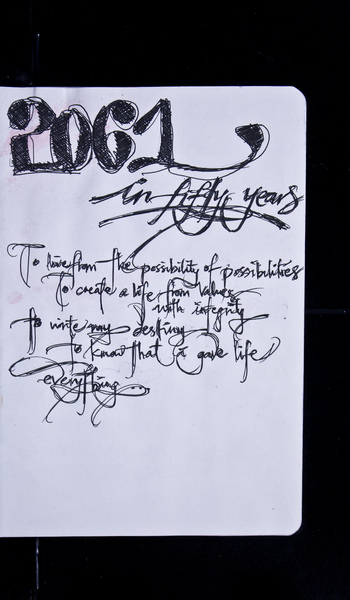 2061
in fifty years
To live from the possibility of possibilities
To create a life from values
with integrity
To write my destiny
To know that I gave life
everything...